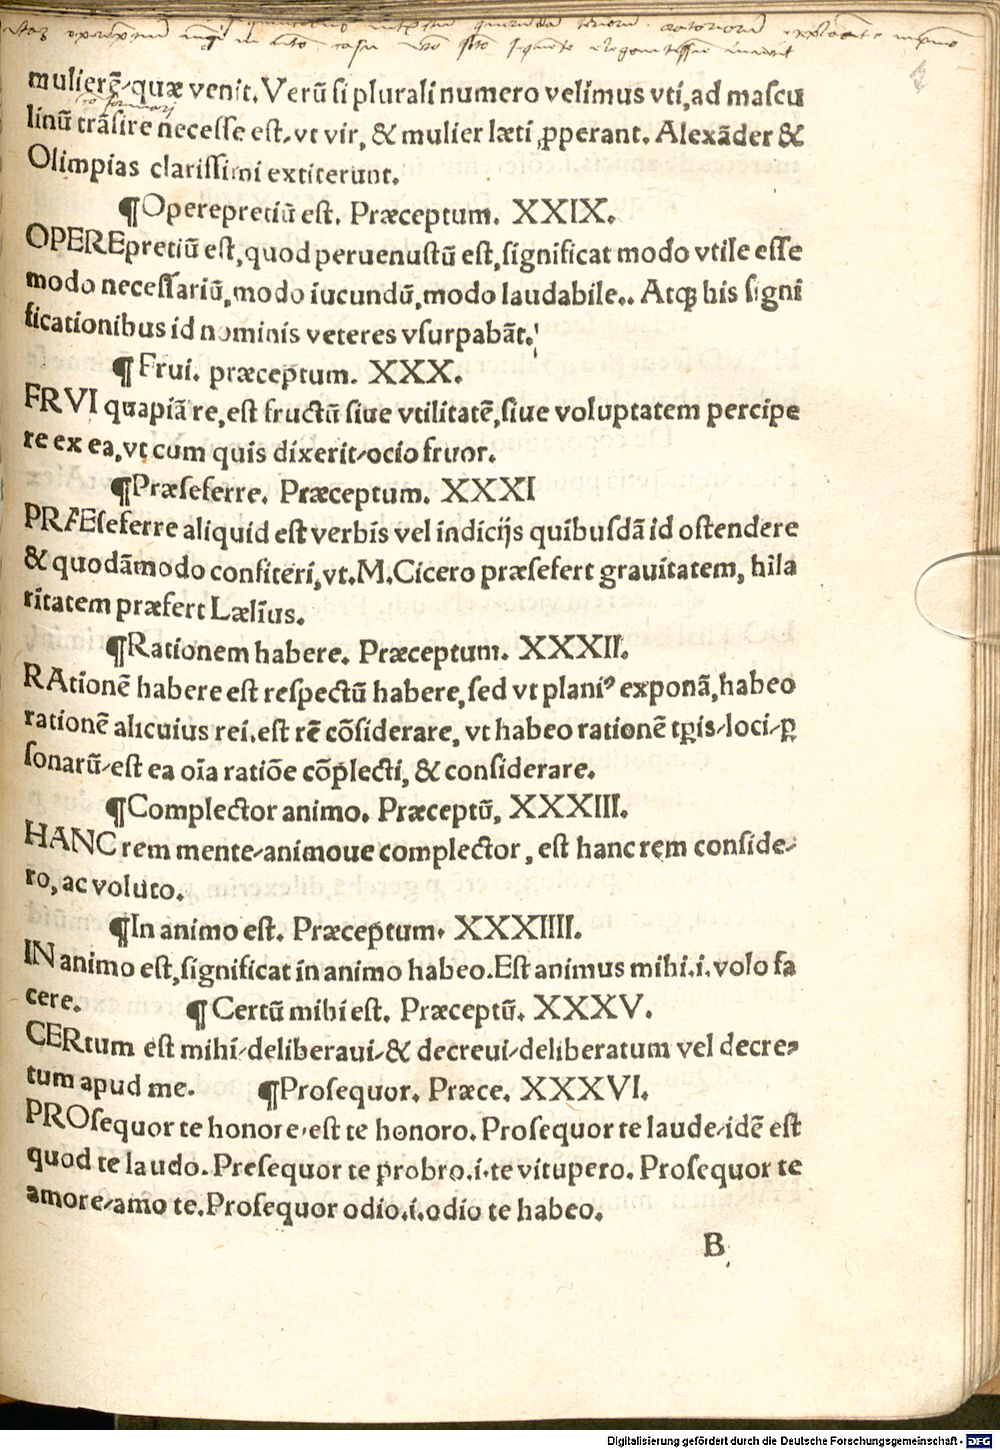 mulierē⸗quæ venit. Verū si plurali numero velimus vti, ad mascu
linū trāsire necesse est, vt vir, & mulier læti ꝓperant. Alexāder &
Olimpias clarissimi extiterunt.
¶Operepretiū est. Præceptum. XXIX.
OPEREpretiū est, quod peruenustū est, significat modo vtile esse
modo necessariū, modo iucundū, modo laudabile.. Atqꝫ his signi
ficationibus id nominis veteres vsurpabāt.
¶Frui. præceptum. XXX.
FRVI quapiā re, est fructū siue vtilitatē, siue voluptatem percipe
re ex ea, vt cum quis dixerit⸗ocio fruor.
¶Præseferre. Præceptum. XXXI
PRÆseferre aliquid est verbis vel indicijs quibusdā id ostendere
& quodāmodo confiteri, vt. M. Cicero præsefert grauitatem, hila
ritatem præfert Lælius.
¶Rationem habere. Præceptum. XXXII.
RAtionē habere est respectū habere, sed vt planiꝰ exponā, habeo
rationē alicuius rei. est rē cōsiderare, vt habeo rationē tꝑis⸗loci⸗ꝑ
sonarū⸗est ea oīa ratiōe cōplecti, & considerare.
¶Complector animo. Præceptū, XXXIII.
HANC rem mente⸗animoue complector, est hanc rem conside⸗
ro, ac voluto.
¶In animo est. Præceptum. XXXIIII.
IN animo est, significat in animo habeo. Est animus mihi .i. volo fa
cere. ¶Certū mihi est. Præceptū. XXXV.
CERtum est mihi⸗deliberaui⸗& decreui⸗deliberatum vel decre⸗
tum apud me. ¶Prosequor. Præce. XXXVI.
PROsequor te honore, est te honoro. Prosequor te laude⸗idē est
quod te laudo. Presequor te probro .i. te vitupero. Prosequor te
amore⸗amo te. Prosequor odio .i. odio te habeo.
B
Digitalisierung gefördert durch die Deutsche Forschungsgemeinschaft - DFG